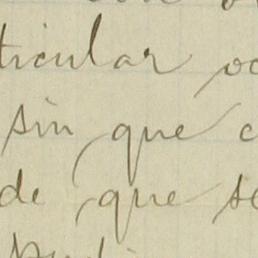 ticular oc
sin que c
de que se